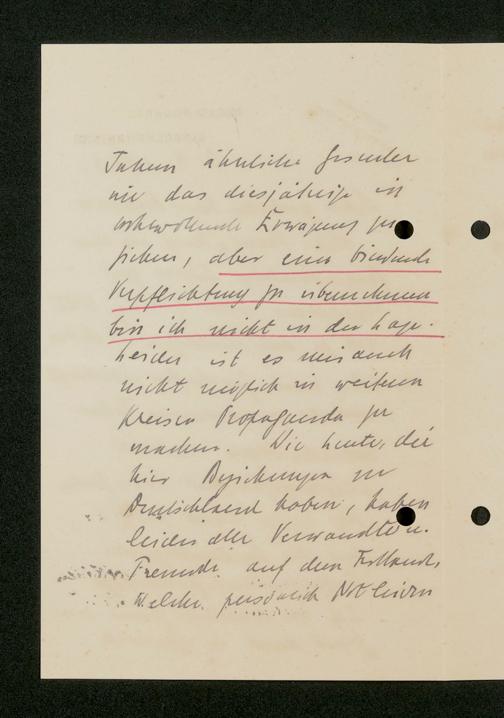 Jahren ähnliche Gesuche
wie das diesjährige in
wohlwollende Erwägung zu
ziehen, aber eine bindende
Verpflichtung zu übernehmen
bin ich nicht in der Lage.
Leider ist es mir auch
nicht möglich in weiteren
Kreisen Propaganda zu
machen. Die Leute, die
hier Beziehungen zu
Deutschland haben, haben
leider alle Verwandte u.
Freunde auf dem Festland,
welche persönlich Not leiden